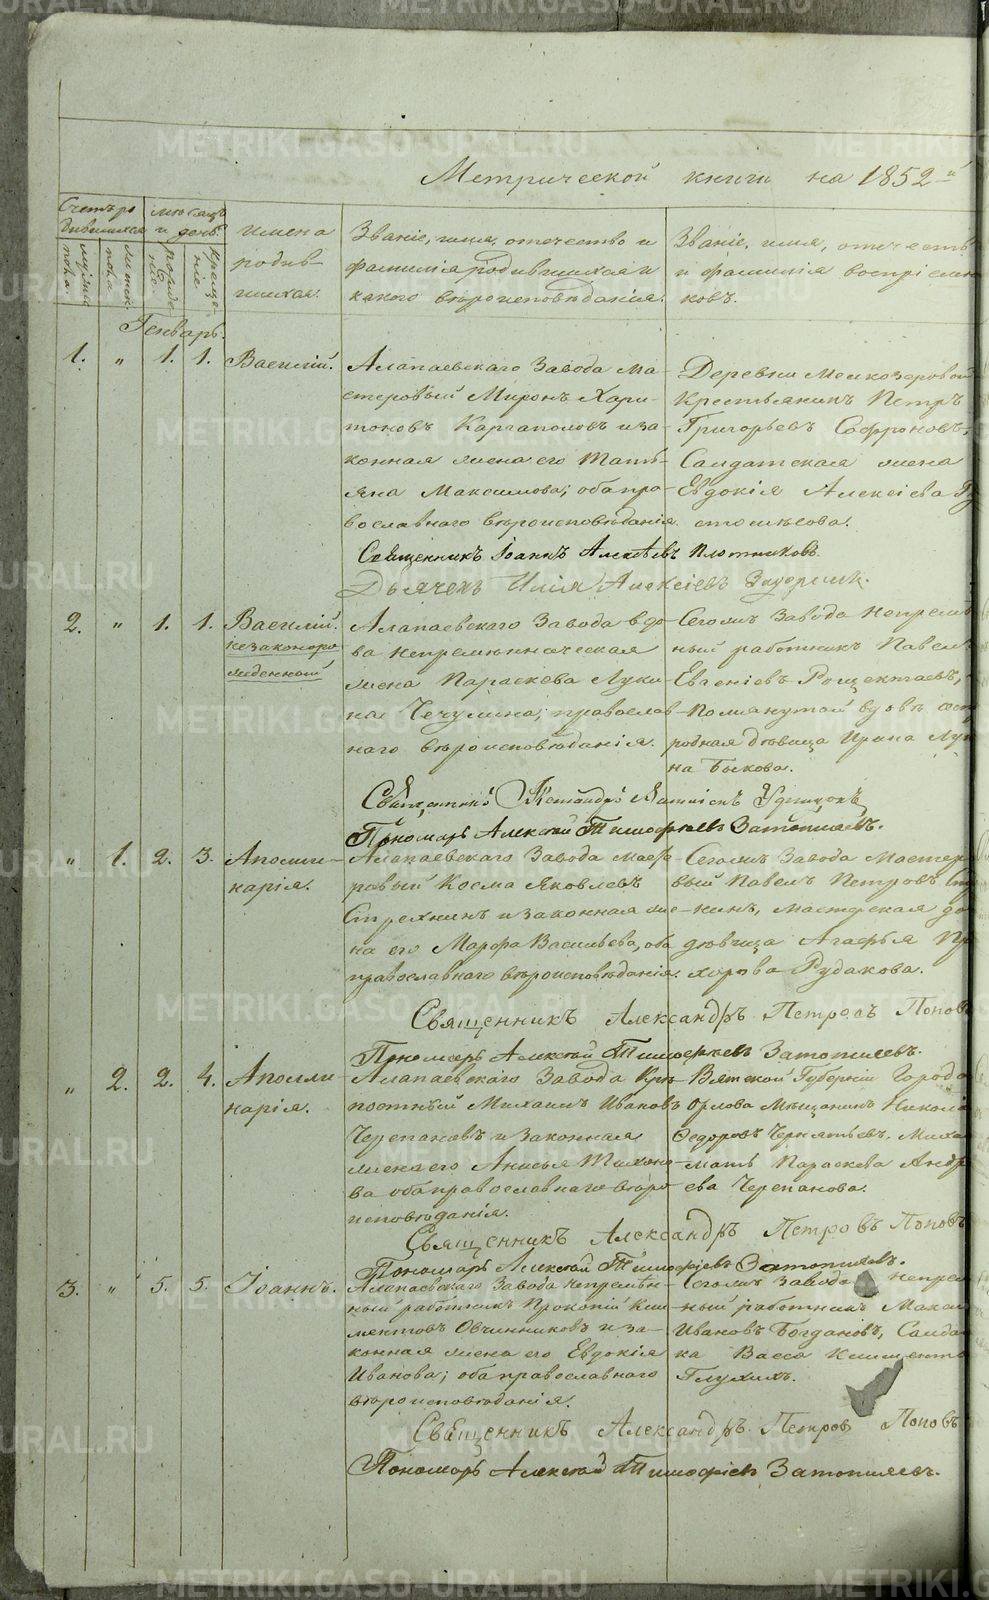 Метрической книги на 1852-й
Счетъ ро
дившихся
мѣсяцъ
и день.
имена
родив-
шихся.
Званіе, имя, отечество и
фамилія родившихся и
какого вѣроисповѣданія.
Званіе, имя, отечеств
и фамилія воспріемни
ковъ.
мужеска
пола.
женск.
пола.
рожде
нія.
креще
нія.
Генварь.
1. " 1. 1. Василій.
Алапаевскаго Завода ма-
стеровый Миронъ Хари-
тоновъ Каргаполовъ и за-
конная жена его Татья-
яна Максимова; оба пра-
вославнаго вѣроисповѣданія.
Деревни Мелкозеровой
крестьянинъ Петръ
Григорьевъ Софроновъ,
Салдатская жена
Евдокія Алексіева
Священникъ Іоаннъ Алексѣевъ Плотниковъ
Дьячекъ Илія Алексіевъ
2. " 1. 1. Василій.
незаконоро
жденный
Алапаевскаго Завода вдо-
ва непремѣнническая
жена Параскова Луки-
на Чечулина; православ-
наго вѣроисповѣданія.
Сегожъ Завода непремѣ
ный работникъ Павелъ
Евгеніевъ Рощектаевъ,
помянутой вдовѣ сест
родная дѣвица Ирина Лук
на Быкова.
Пономарь Алексѣй Тимофѣевъ Затопляевъ.
" 1. 2. 3. Аполли-
нарія.
Алапаевскаго Завода масте
ровый Косма Яковлевъ
Стрехнинъ и законная же-
на его Марфа Васильева, оба
православнаго вѣроисповѣданія.
Сегожъ Завода мастеро
вый Павелъ Петровъ Стр
нинъ, мастерская до
дѣвица Агафья Пр
хорова Рудакова.
Священникъ Александръ Петровъ Поповъ
Пономарь Алексѣй Тимофѣевъ Затопляевъ.
" 2. 2. 4. Аполли-
нарія.
Алапаевскаго Завода Крѣ-
постный Михаилъ Ивановъ
Черепановъ и законная
жена его Анисья Тихоно-
ва оба православнаго вѣро
исповѣданія.
Вятской Губерніи Города
Орлова Мѣщанинъ Николай
Федоровъ Чернятьевъ. Миха
мать Параскева Андр
ева Черепанова.
Священникъ Александръ Петровъ Поповъ
Пономарь Алексѣй Тимофѣевъ Затопляевъ.
3. " 5. 5. Іоаннъ.
Алапаевскаго Завода непремѣн-
ный работникъ Прокопій Кли-
ментовъ Овчинниковъ и за-
конная жена его Евдокія
Иванова; оба православнаго
вѣроисповѣданія.
Сегожъ Завода непрем
ный работникъ Макси
Ивановъ Богдановъ, Салда
ка Васса Климента
Глухихъ.
Священникъ Александръ Петровъ Поповъ
Пономарь Алексѣй Тимофѣевъ Затопляевъ.
METRIKI.GASO-URAL.RU